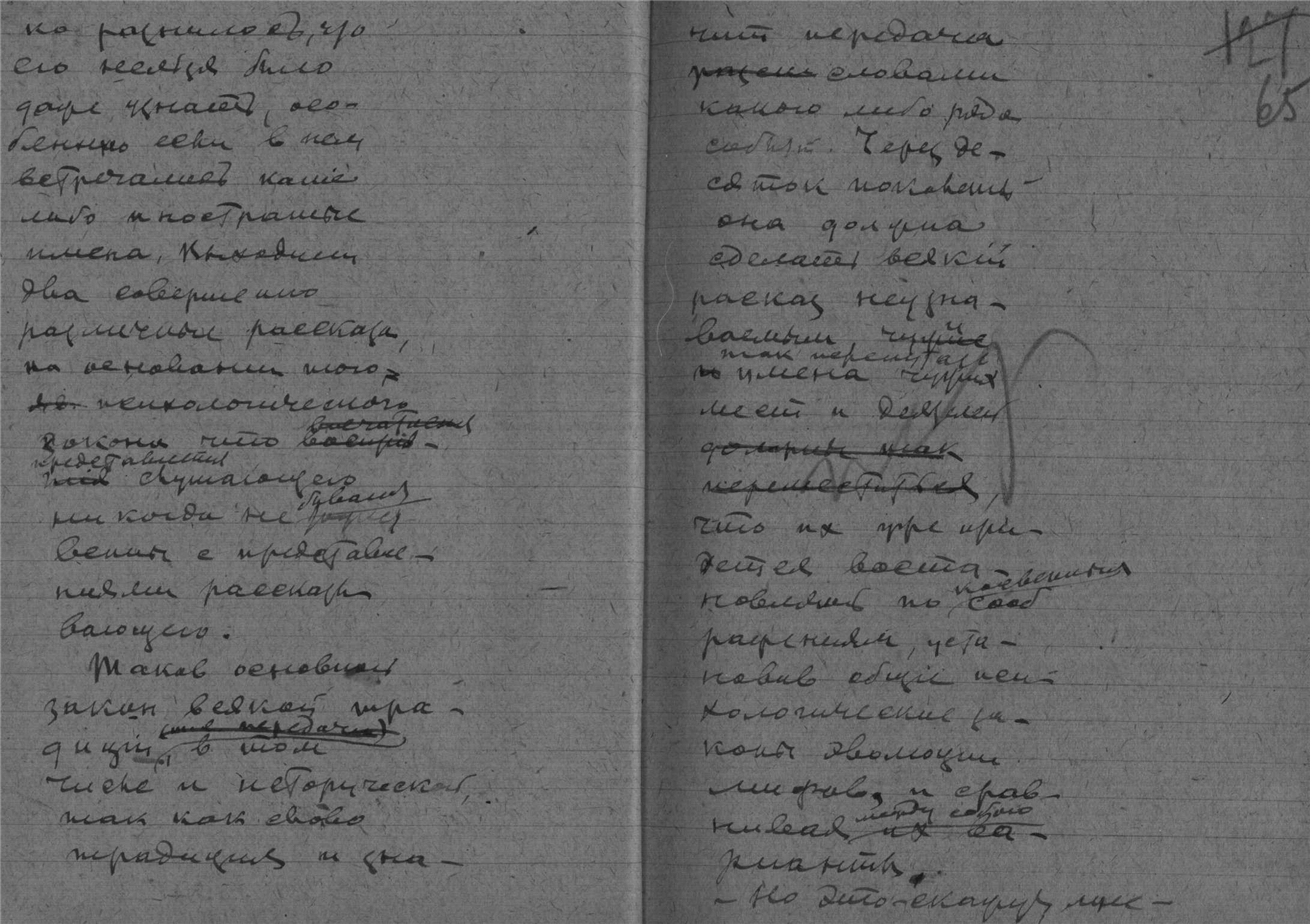 ко разнилось, что
его нельзя было
даже узнать, осо-
бенно если в нем
встречались какие
либо иностранные
имена. Выходили
два совершенно
различных рассказа,
на основании того,
психологического
закона что
представления
слушающего
никогда не
бывают
венны с представле-
ниями рассказы-
вающего.
Таков основной
закон всякой тра-
диции,
(или передачи)
в том
числе и исторической,
так как слово
традиция и зна-
127
65
чит передача
словами
какого либо ряда
событій. Через де-
сяток поколений
она должна
сделать всякій
расказ неузна-
ваемым
так перепутать
имена
мест и деятелей
должны так
переместиться,
что их уже при-
дется воста-
новлять по
косвенным
сооб
ражениям, уста-
новив общие пси-
хологические за-
коны эволюции
мифов, и срав-
нивая
между собою
их ва-
рианты.
- Но это-скажут мне -